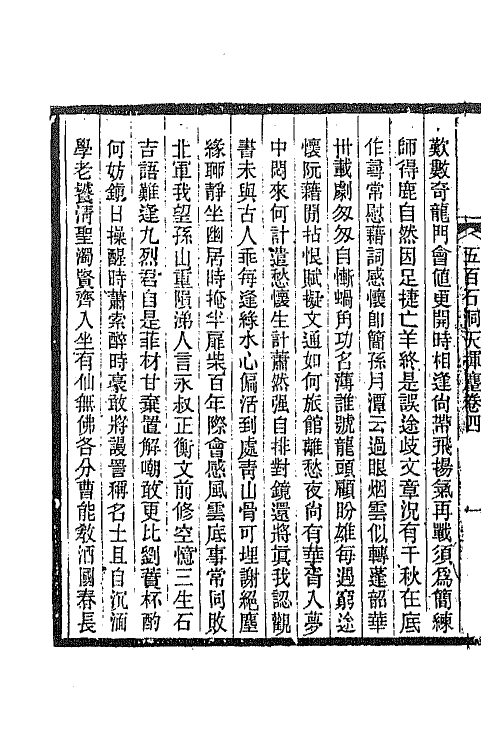 五百石洞天揮麈卷四
一
歎數奇龍門會値更開時相逢尙帶飛揚氣再戰須爲簡練
師得鹿自然因足捷亡羊終是誤途歧文章況有千秋在底
作尋常慰藉詞感懷卽簡孫月潭云過眼烟雲似轉蓬韶華
卅載劇匆匆自慚蝸角功名薄誰號龍頭顧盼雄每遇窮途
懷阮藉閒拈恨賦擬文通如何旅館離愁夜尙有華胥入夢
中悶來何計遣愁懷生計蕭然强自排對鏡還將眞我認觀
書未與古人乖每逢綠水心偏活到處靑山骨可埋謝絕塵
緣聊靜坐幽居時掩半扉柴百年際會感風雲底事常同敗
北軍我望孫山重隕涕人言永叔正衡文前修空憶三生石
吉語難逢九烈君自是菲材甘棄置解嘲敢更比劉蕡杯酌
何妨鎭日操醒時蕭索醉時豪敢將謾詈稱名士且自沉湎
學老饕淸聖濁賢齊入坐有仙無佛各分曹能敎酒國春長